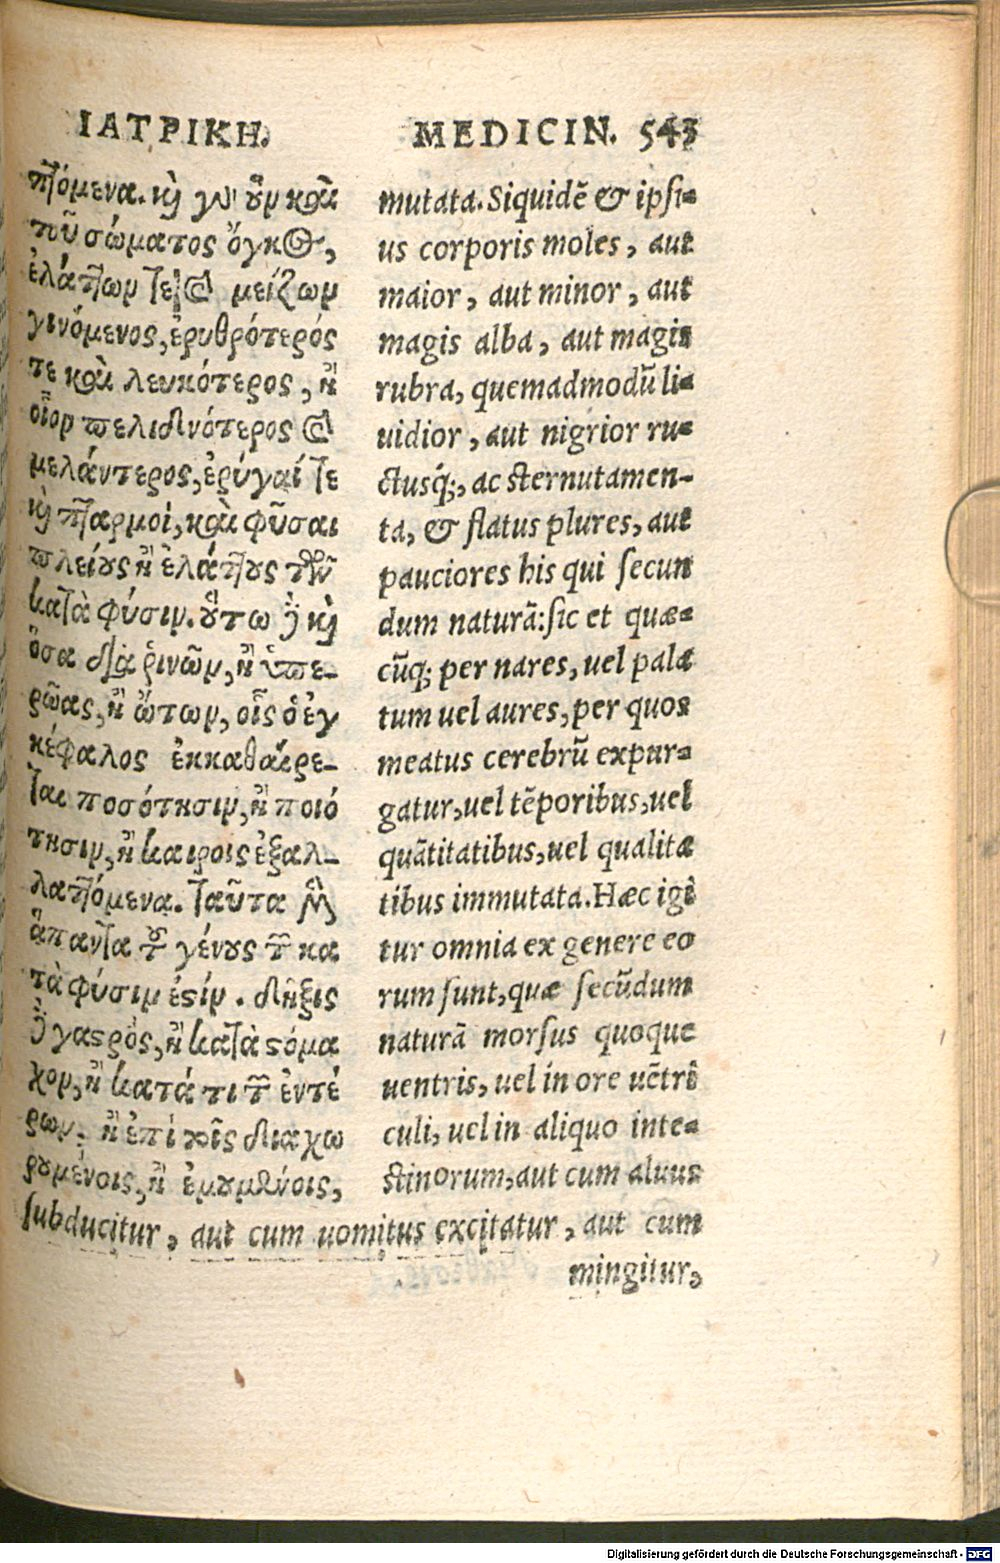 ΙΑΤΡΙΚΗ.
πτόμενα. καὶ γὰρ οὖν καὶ
τοῦ σώματος ὄγκος,
ἐλάττων τε καὶ μείζων
γινόμενος, ἐρυθρότερός
τε καὶ λευκότερος, ἢ
οἷον πελιδνότερος καὶ
μελάντερος, ἐρυγαί τε
καὶ πταρμοὶ, καὶ φῦσαι
πλείους ἢ ἐλάττους τῶν
κατὰ φύσιν. οὕτω δὲ καὶ
ὅσα διὰ ῥινῶν, ἢ ὑπε-
ρῴας, ἢ ὤτων, οἷς ὁ ἐγ
κέφαλος ἐκκαθαίρε-
ται ποσότησιν, ἢ ποιό
τησιν, ἢ καιροῖς ἐξαλ-
λαττόμενα. ταῦτα μὲν
ἅπαντα τοῦ γένους τῶν κα
τὰ φύσιν ἐστίν. δῆξις
δὲ γαστρὸς, ἢ κατὰ στόμα
χον, ἢ κατά τι τῶν ἐντέ
ρων, ἢ ἐπὶ τοῖς διαχω
ρουμένοις, ἢ ἐμουμένοις,
MEDICIN. 543
mutata. Siquidẽ & ipsi-
us corporis moles, aut
maior, aut minor, aut
magis alba, aut magis
rubra, quemadmodũ li-
uidior, aut nigrior ru-
ctusq́;, ac sternutamen-
ta, & flatus plures, aut
pauciores his qui secun
dum naturã: sic et quæ-
cũq; per nares, uel pala
tum uel aures, per quos
meatus cerebrũ expur-
gatur, uel tẽporibus, uel
quãtitatibus, uel qualita
tibus immutata. Hæc igi
tur omnia ex genere eo
rum sunt, quæ secũdum
naturã morsus quoque
uentris, uel in ore uẽtri
culi, uel in aliquo inte-
stinorum, aut cum aluus
subducitur, aut cum uomitus excitatur, aut cum
mingitur,
Digitalisierung gefördert durch die Deutsche Forschungsgemeinschaft - DFG